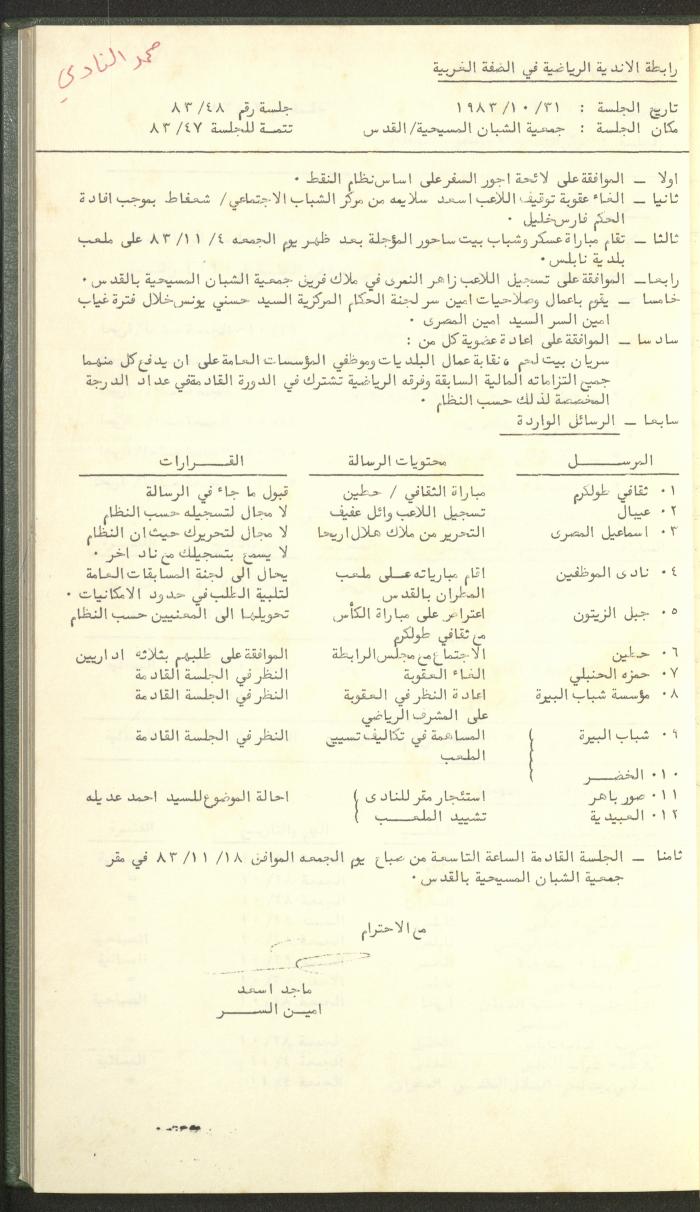 رابطة الاندية الرياضية في الضفة الغربية
تاريخ الجلسة : ٣١/ ١٠/ ١٩٨٣ جلسة رقم ٨٣/٤٨
مكان الجلسة : جمعية الشبان المسيحية/ القدس تتمة للجلسة ٨٣/٤٧
اولا ــ الموافقة على لائحة اجور السفر على اساس نظام النقط ٠
ثانيا ــ الغاء عقوبة توقيف اللاعب اسعد سلايمه من مركز الشباب الاجتماعي/ شعفاط بموجب افادة
الحكم فارس خليل ٠
ثالثا ــ تقام مباراة عسكر وشباب بيت ساحور المؤجلة بعد ظهر يوم الجمعه ٤/ ١١/ ٨٣ على ملعب
بلدية نابلس ٠
رابعا ــ الموافقة على تسجيل اللاعب زاهر النمرى في ملاك فريق جمعية الشبان المسيحية بالقدس ٠
خامسا ــ يقوم باعمال وصلاحيات امين سر لجنة الحكام المركزية السيد حسني يونس خلال فترة غياب
امين السر السيد امين المصرى ٠
سادسا ــ الموافقة على اعادة عضوية كل من :
سريان بيت لحم ، نقابة عمال البلديات وموظفي المؤسسات العامة على ان يدفع كل منهما
جميع التزاماته المالية السابقة وفرقه الرياضية تشترك في الدورة القادمة في عداد الدرجة
المخصصة لذلك حسب النظام ٠
سابعا ــ الرسائل الواردة
المرســـل محتويات الرسالة القـــرارات
٠١ ثقافي طولكرم مباراة الثقافي / حطين قبول ما جاء في الرسالة
٠٢ عيبال تسجيل اللاعب وائل عفيف لا مجال لتسجيله حسب النظام
٠٣ اسماعيل المصرى التحرير من ملاك هلال اريحا لا مجال لتحريرك حيث ان النظام
لا يسمح بتسجيلك مع ناد اخر ٠
٠٤ نادى الموظفين اقام مبارياته علـى ملعب يحال الى لجنة المسابقات العامة
المطران بالقدس لتلبية الطلب في حدود الامكانيات ٠
٠٥ جبل الزيتون اعتراض على مباراة الكأس تحويلها الى المعنيين حسب النظام
مع ثقافي طولكرم
٠٦ حطين الاجتماع مع مجلس الرابطة الموافقة على طلبهم بثلاثه اداريين
٠٧ حمزه الحنبلي الغاء العقوبة النظر في الجلسة القادمة
٠٨ مؤسسة شباب البيرة اعادة النظر في العقوبة النظر في الجلسة القادمة
على المشرف الرياضي
٠٩ شباب البيرة المساهمة في تكاليف تسييج النظر في الجلسة القادمة
الملعب
٠١٠ الخضـــر
٠١١ صور باهر استئجار مقر للنادى احالة الموضوع للسيد احمد عديله
٠١٢ العبيدية تشييد الملعـــب
ثامنا ــ الجلسة القادمة الساعة التاسعة من صباح يوم الجمعه الموافق ١٨/ ١١/ ٨٣ في مقر
جمعية الشبان المسيحية بالقدس ٠
مع الاحترام
ماجد اسعد
اميـن الســـر